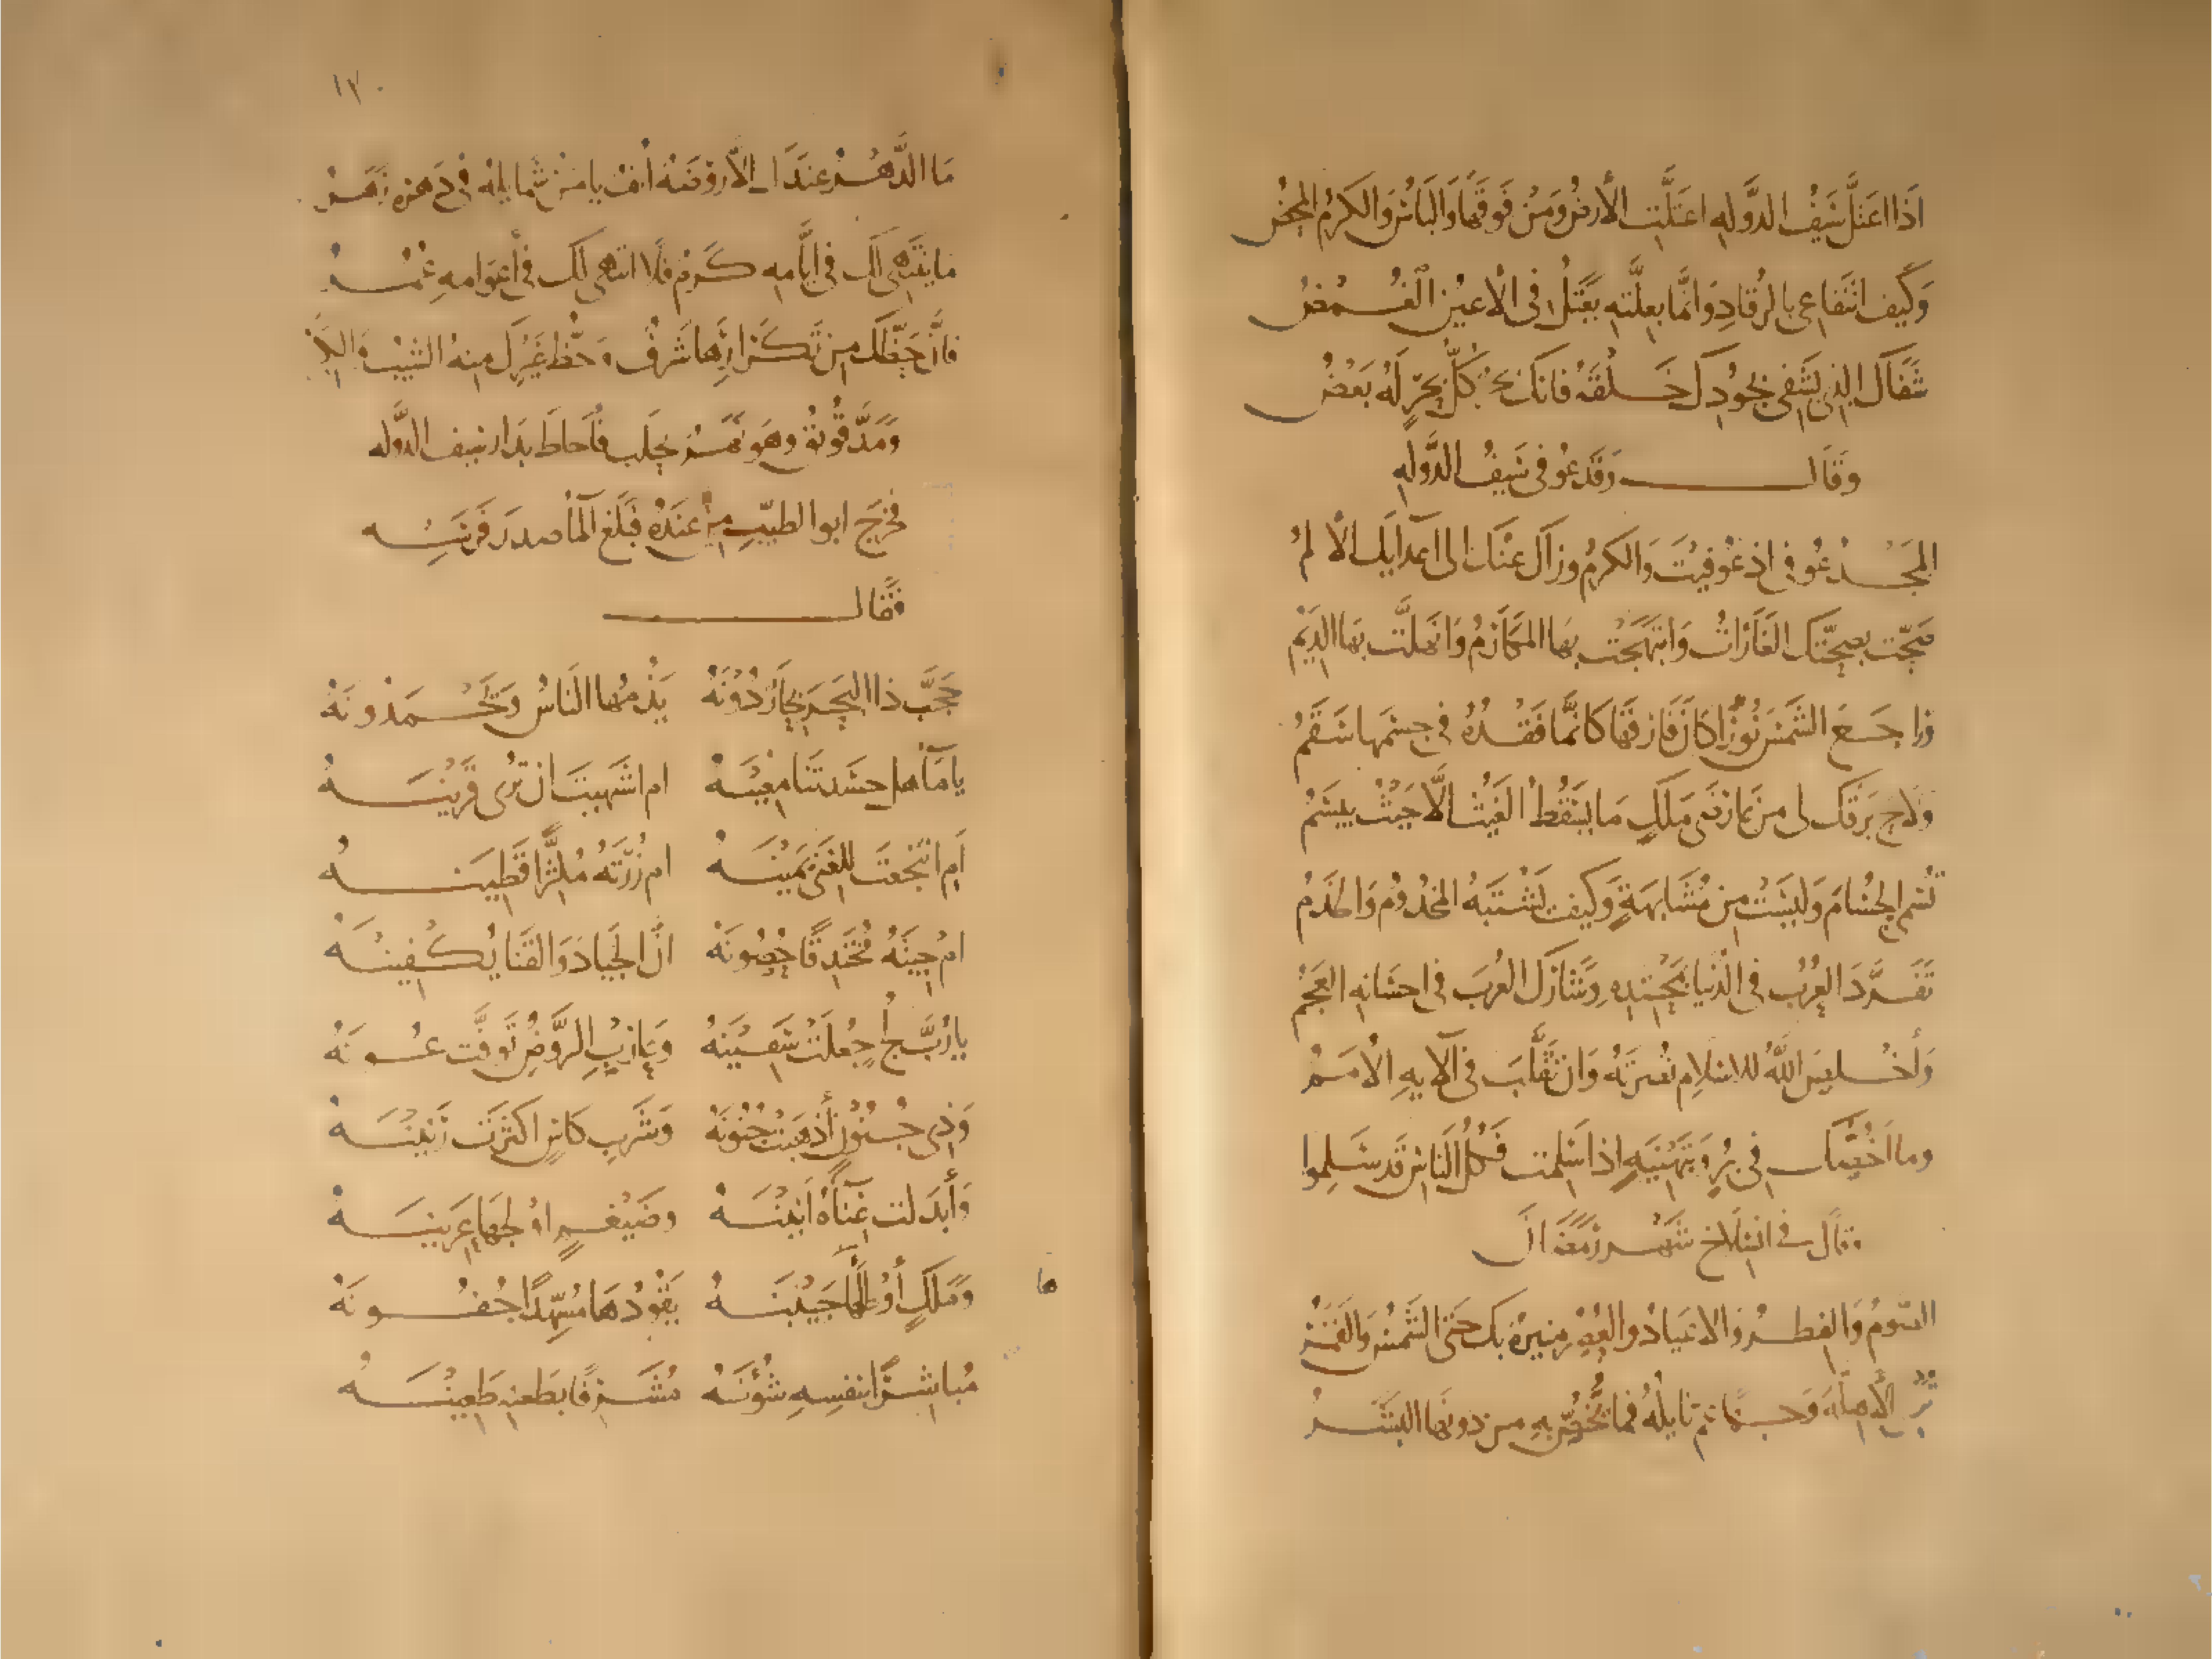 اذا اعتلّ سَيفُ الدَّولهِ اعتَلَّتِ الأرضُ ومَن فَوقَها وَالبَأسُ وَالكرمُ المحضُ
وَكَيف انتفاعى بالرُقادِ وَانَّما بعلّتهِ يَعتلُّ فى الأعيُنِ الغُمضُ
شَفاكَ الذى يَشفى بجُودِكَ خَلقَهُ فانكَ بحرٌ كلُّ بحرٍ لَهُ بَعضُ
وقال وَقد عُوفى سَيفُ الدَّولهِ
المَجدُ عُوفى اذ عُوفيتَ وَالكرمُ وزالَ عنكَ الى اعدايكَ الألمُ
صَحّت بصحّتكَ الغاراتُ وَابتَهَجَت بها المكارمُ وَانهلّت بها الدِيَمُ
وراجعَ الشَّمسَ نُورٌ كانَ فارَقَها كانَّما فَقدُهُ فى جسمها سَقَمُ
ولاح بَرقكَ لى من عارضَى مَلكٍ مَا يَسقُطُ الغَيثُ الّا حَيثُ يبتسمُ
تُسمى الحُسامَ وَليسَت من مُشابهَةٍ وَكيفَ يَشتَبهُ المخدُومُ وَالخَدمُ
تَفَرَّدَ العُربُ فى الدُنيا بمَحتِدهِ وَشاركَ العُربَ فى احسانهِ العَجَمُ
وَأخلصَ اللّهُ للاسلامِ نُصرَتَهُ وَان تَقَلَّبَ فى آلآيهِ الأُمَمُ
وما اخُصّكَ فى بُرءٍ بتَهنيَهٍ اذا سَلِمتَ فَكلُّ النّاسِ قَد سَلِموا
وقال فى انسلاخ شَهر رَمَضَانَ
الصَّومُ وَالفِطرُ وَالاعيادُ والعُصُرُ منيرةٌ بكَ حتّى الشَّمسُ وَالقَمَرُ
تُرى الأهلّةَ وَجهًا عَمّ نايلُهُ فما يُخَصّ بهِ من دونها البَشَرُ
١٣٠
مَا الدَّهرُ عندَكَ الّا رَوضَةٌ أُنفٌ يا من شَمايلهُ فى دَهرِه زَهَرُ
ما ينتَهى لكَ فى ايّامهِ كَرَمٌ فَلا انتهى لكَ فى أعوَامهِ عُمُرُ
فانَّ حَظّكَ من تَكرارِها شَرفٌ وَحَظُّ غَيرِكَ منهُ الشَيبُ وَالكِبَرُ
وَمَدَّ قُوَيقٌ وهَو نَهرٌ بحَلَب فأحاطَ بدار سَيف الدَّوله
فخرجَ ابوا الطيّبِ من عندهِ فبلغ المآ صدرَ فَرسِه
فقال
حَجَّبَ ذا البَحرَ بحارٌ دُونَهُ يَذُمُّها النّاسُ وَيَحمَدُونَهُ
يا مآءُ هل حسَدتَنا مَعينَهُ ام اشتَهيتَ ان تُرى قَرينَهُ
أم انتجعتَ للغنى يَمينَهُ ام زُرتَهُ مُكثّرا قَطينَهُ
ام جيتَهُ مُخندِقًا حُصُونَهُ انَّ الجيادَ وَالقَنا يَكفينَهُ
يا رُبَّ لُجٍّ جُعلَت سَفينَهُ وَعازِبِ الرَّوضِ تَوفَّت عُونَهُ
وَذى جُنُونٍ أذهَبَت جُنُونَهُ وَشَربِ كاسٍ اكثرَت رَنينَهُ
وَأبدَلت غنآءهُ انينَهُ وضَيغمٍ اولَجَها عَرينَهُ
وَمَلكٍ أَوطأها جَبينَهُ يَقُودُها مُسَهِّدًا جُفُونَهُ
مُباشِرًا بنفسِهِ شُؤُنَهُ مُشَرّفًا بطعنِهِ طَعينَهُ